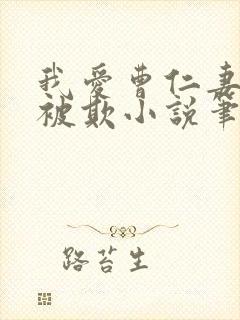 我爱曹仁妻
被欺小说笔
路苔生